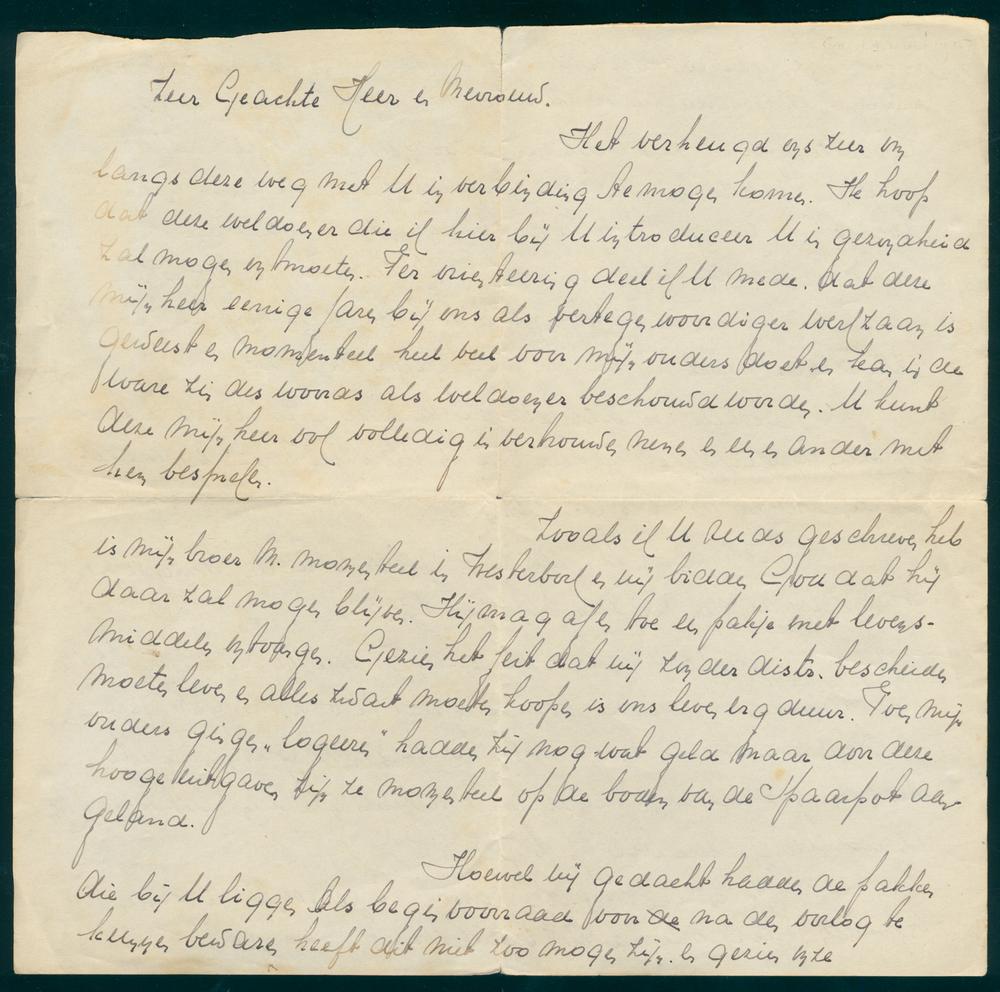 Zeer Geachte Heer en Mevrouw.
Het verheugd ons zeer om
langs deze weg met U in verbinding te mogen komen. Ik hoop
dat deze weldoener die ik hier bij U introduceer U in gezondheid
zal mogen ontmoeten. Ter orienteering deel ik U mede. dat deze
mijnheer eenige jaren bij ons als vertegenwoordiger werkzaam is
geweest en momenteel heel veel voor mijn ouders doet en kan in de
ware zin des woords als weldoener beschouwd worden. U kunt
deze mijnheer vol volledig in vertrouwen nemen en een en ander met
hem bespreken.
Zooals ik U reeds geschreven heb
is mijn broer M. momenteel in Westerbork en wij bidden God dat hij
daar zal mogen blijven. Hij mag af en toe een pakje met levens-
middelen ontvangen. Gezien het feit dat wij zonder distr. bescheiden
moeten leven en alles zwart moeten koopen is ons leven erg duur. Toen mijn
ouders gingen „logeeren" hadden zij nog wat geld maar door deze
hooge uitgaven zijn ze momenteel op de bodem van de Spaarpot aan-
geland.
Hoewel wij gedacht hadden de pakken
die bij U liggen als beginvoorraad voor de na den oorlog te
kunnen bewaren heeft dit niet zoo mogen zijn. en gezien onze